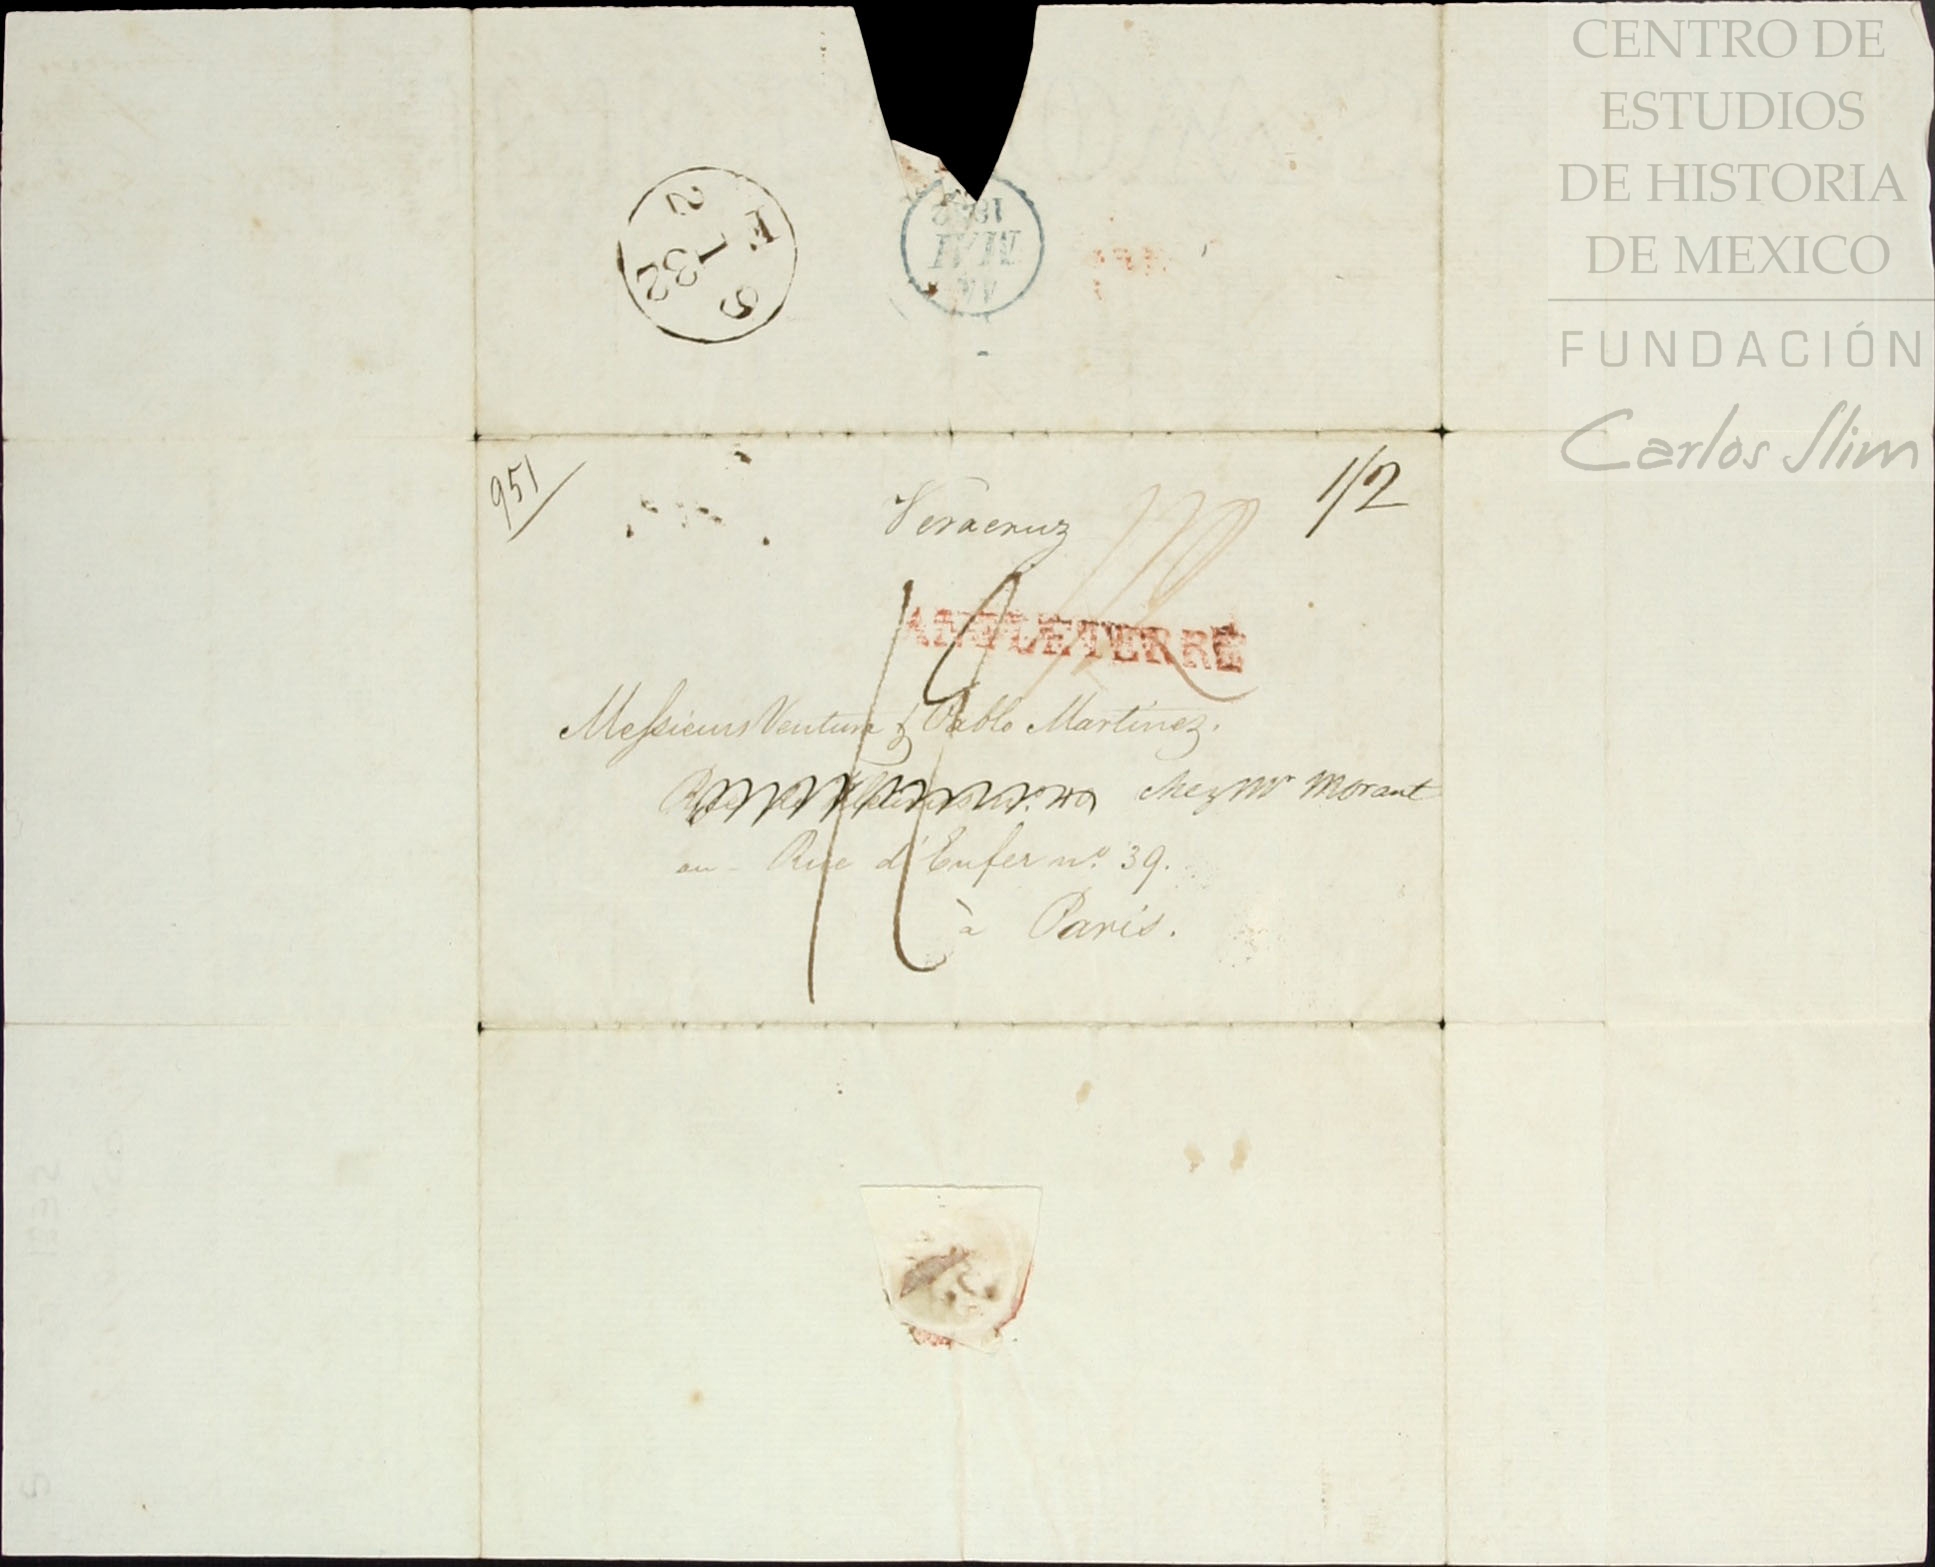 CENTRO DE
ESTUDIOS
DE HISTORIA
DE MEXICO
FUNDACIÓN
Carlos Slim
MAI
951
1/2
Veracruz
ANGLETERRE
Messieurs Ventura & Pablo Martinez.
chez Mr Morant
au - Rue d'Enfer nº 39.
à Paris.